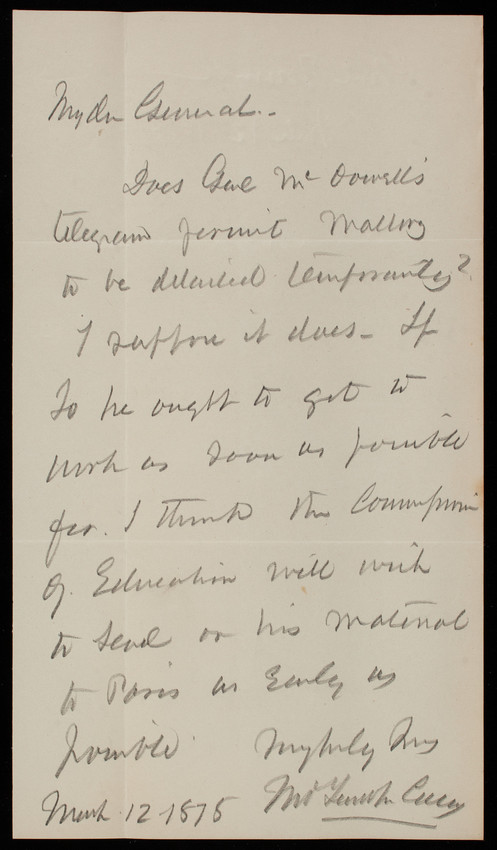 My dear General. -
Does Genl McDowell's
telegram permit Mallory
to be detailed temporarily?
I suppose it does - If
so he ought to get to
work as soon as possible
for I think the Commissioner
of Education will wish
to send on his material
to Paris as Early as
possible. Very truly Yrs
March 12 1878 Thos Lincoln Casey